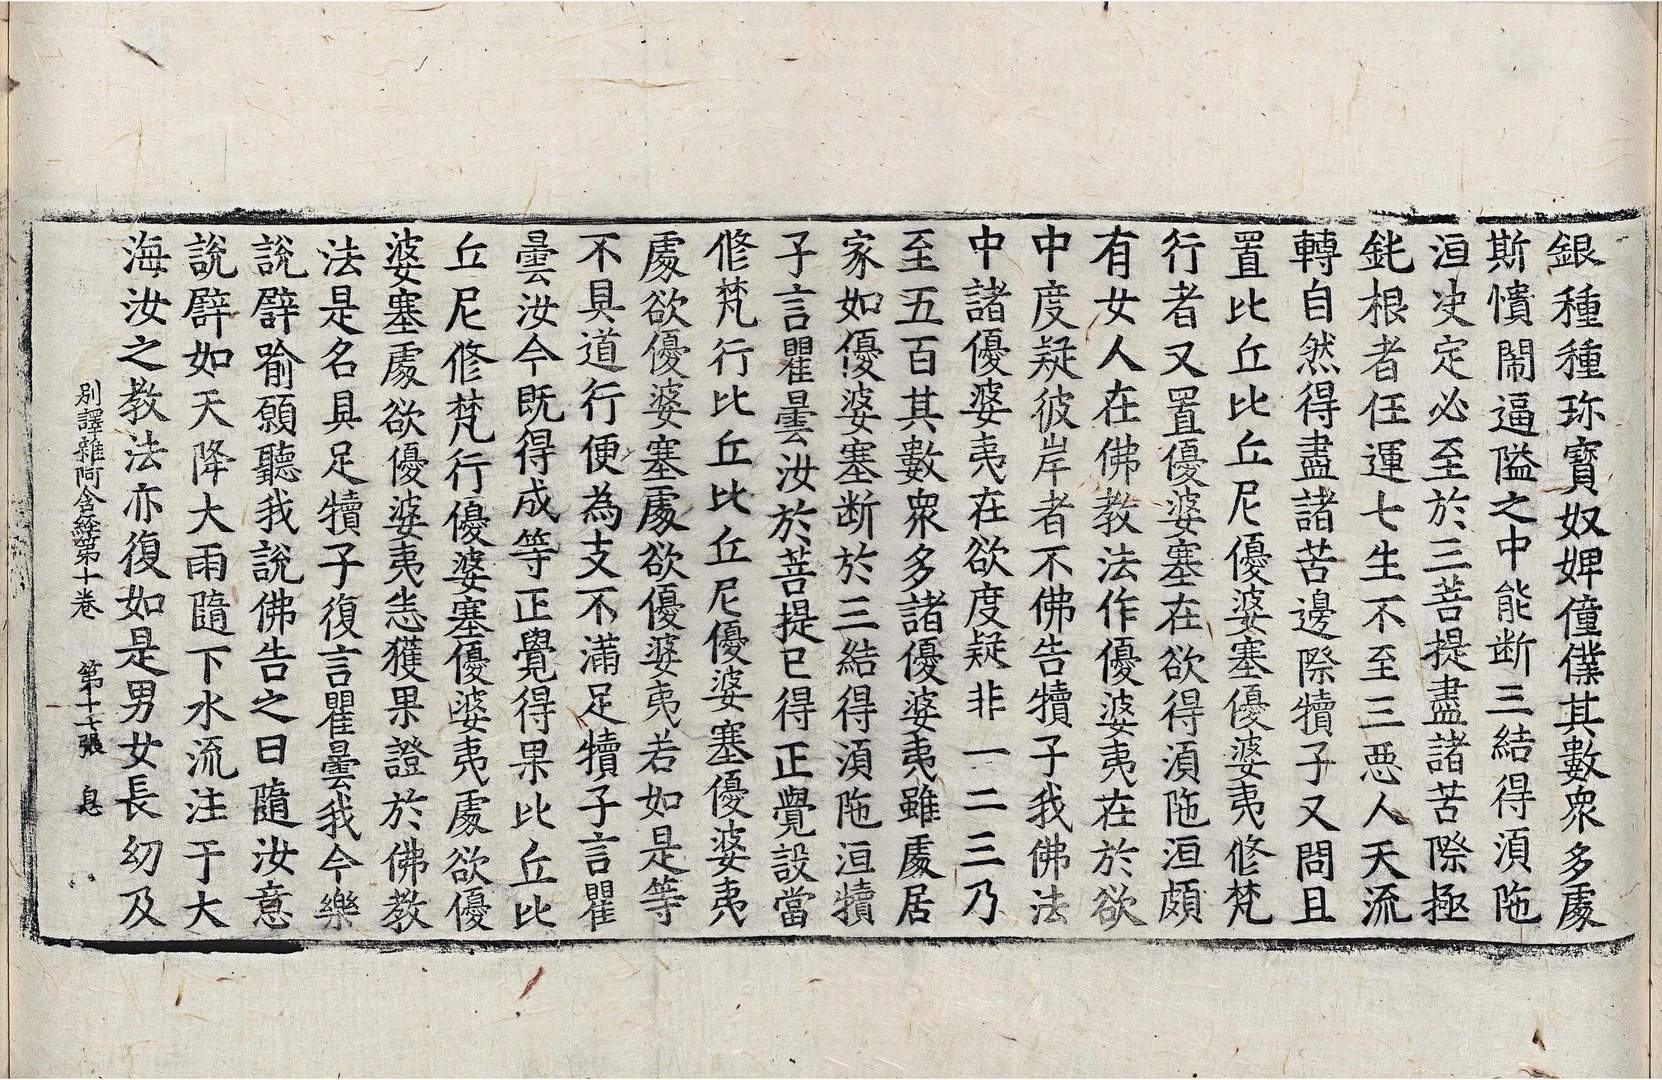 銀種種珎寶奴婢僮僕其數衆多處
斯憒閙逼隘之中能断三結得湏陁
洹决定必至於三菩提盡諸苦際極
鈍根者任運七生不至三惡人天流
轉自然得盡諸苦邊際犢子又問且
置比丘比丘尼優婆塞優婆夷修梵
行者又置優婆塞在欲得湏陁洹頗
有女人在佛教法作優婆夷在於欲
中度疑彼岸者不佛告犢子我佛法
中諸優婆夷在欲度疑非一二三乃
至五百其數衆多諸優婆夷雖處居
家如優婆塞断於三結得湏陁洹犢
子言瞿曇汝於菩提已得正覺設當
修梵行比丘比丘尼優婆塞優婆夷
處欲優婆塞處欲優婆夷若如是等
不具道行便為支不滿足犢子言瞿
曇汝今既得成等正覺得果比丘比
丘尼修梵行優婆塞優婆夷處欲優
婆塞處欲優婆夷恙獲果證於佛教
法是名具足犢子復言瞿曇我今樂
說譬喻願聽我說佛告之曰隨汝意
說譬如天降大雨隨下水流注于大
海汝之教法亦復如是男女長幼及
別譯雜阿含経第十卷 第十七張 息